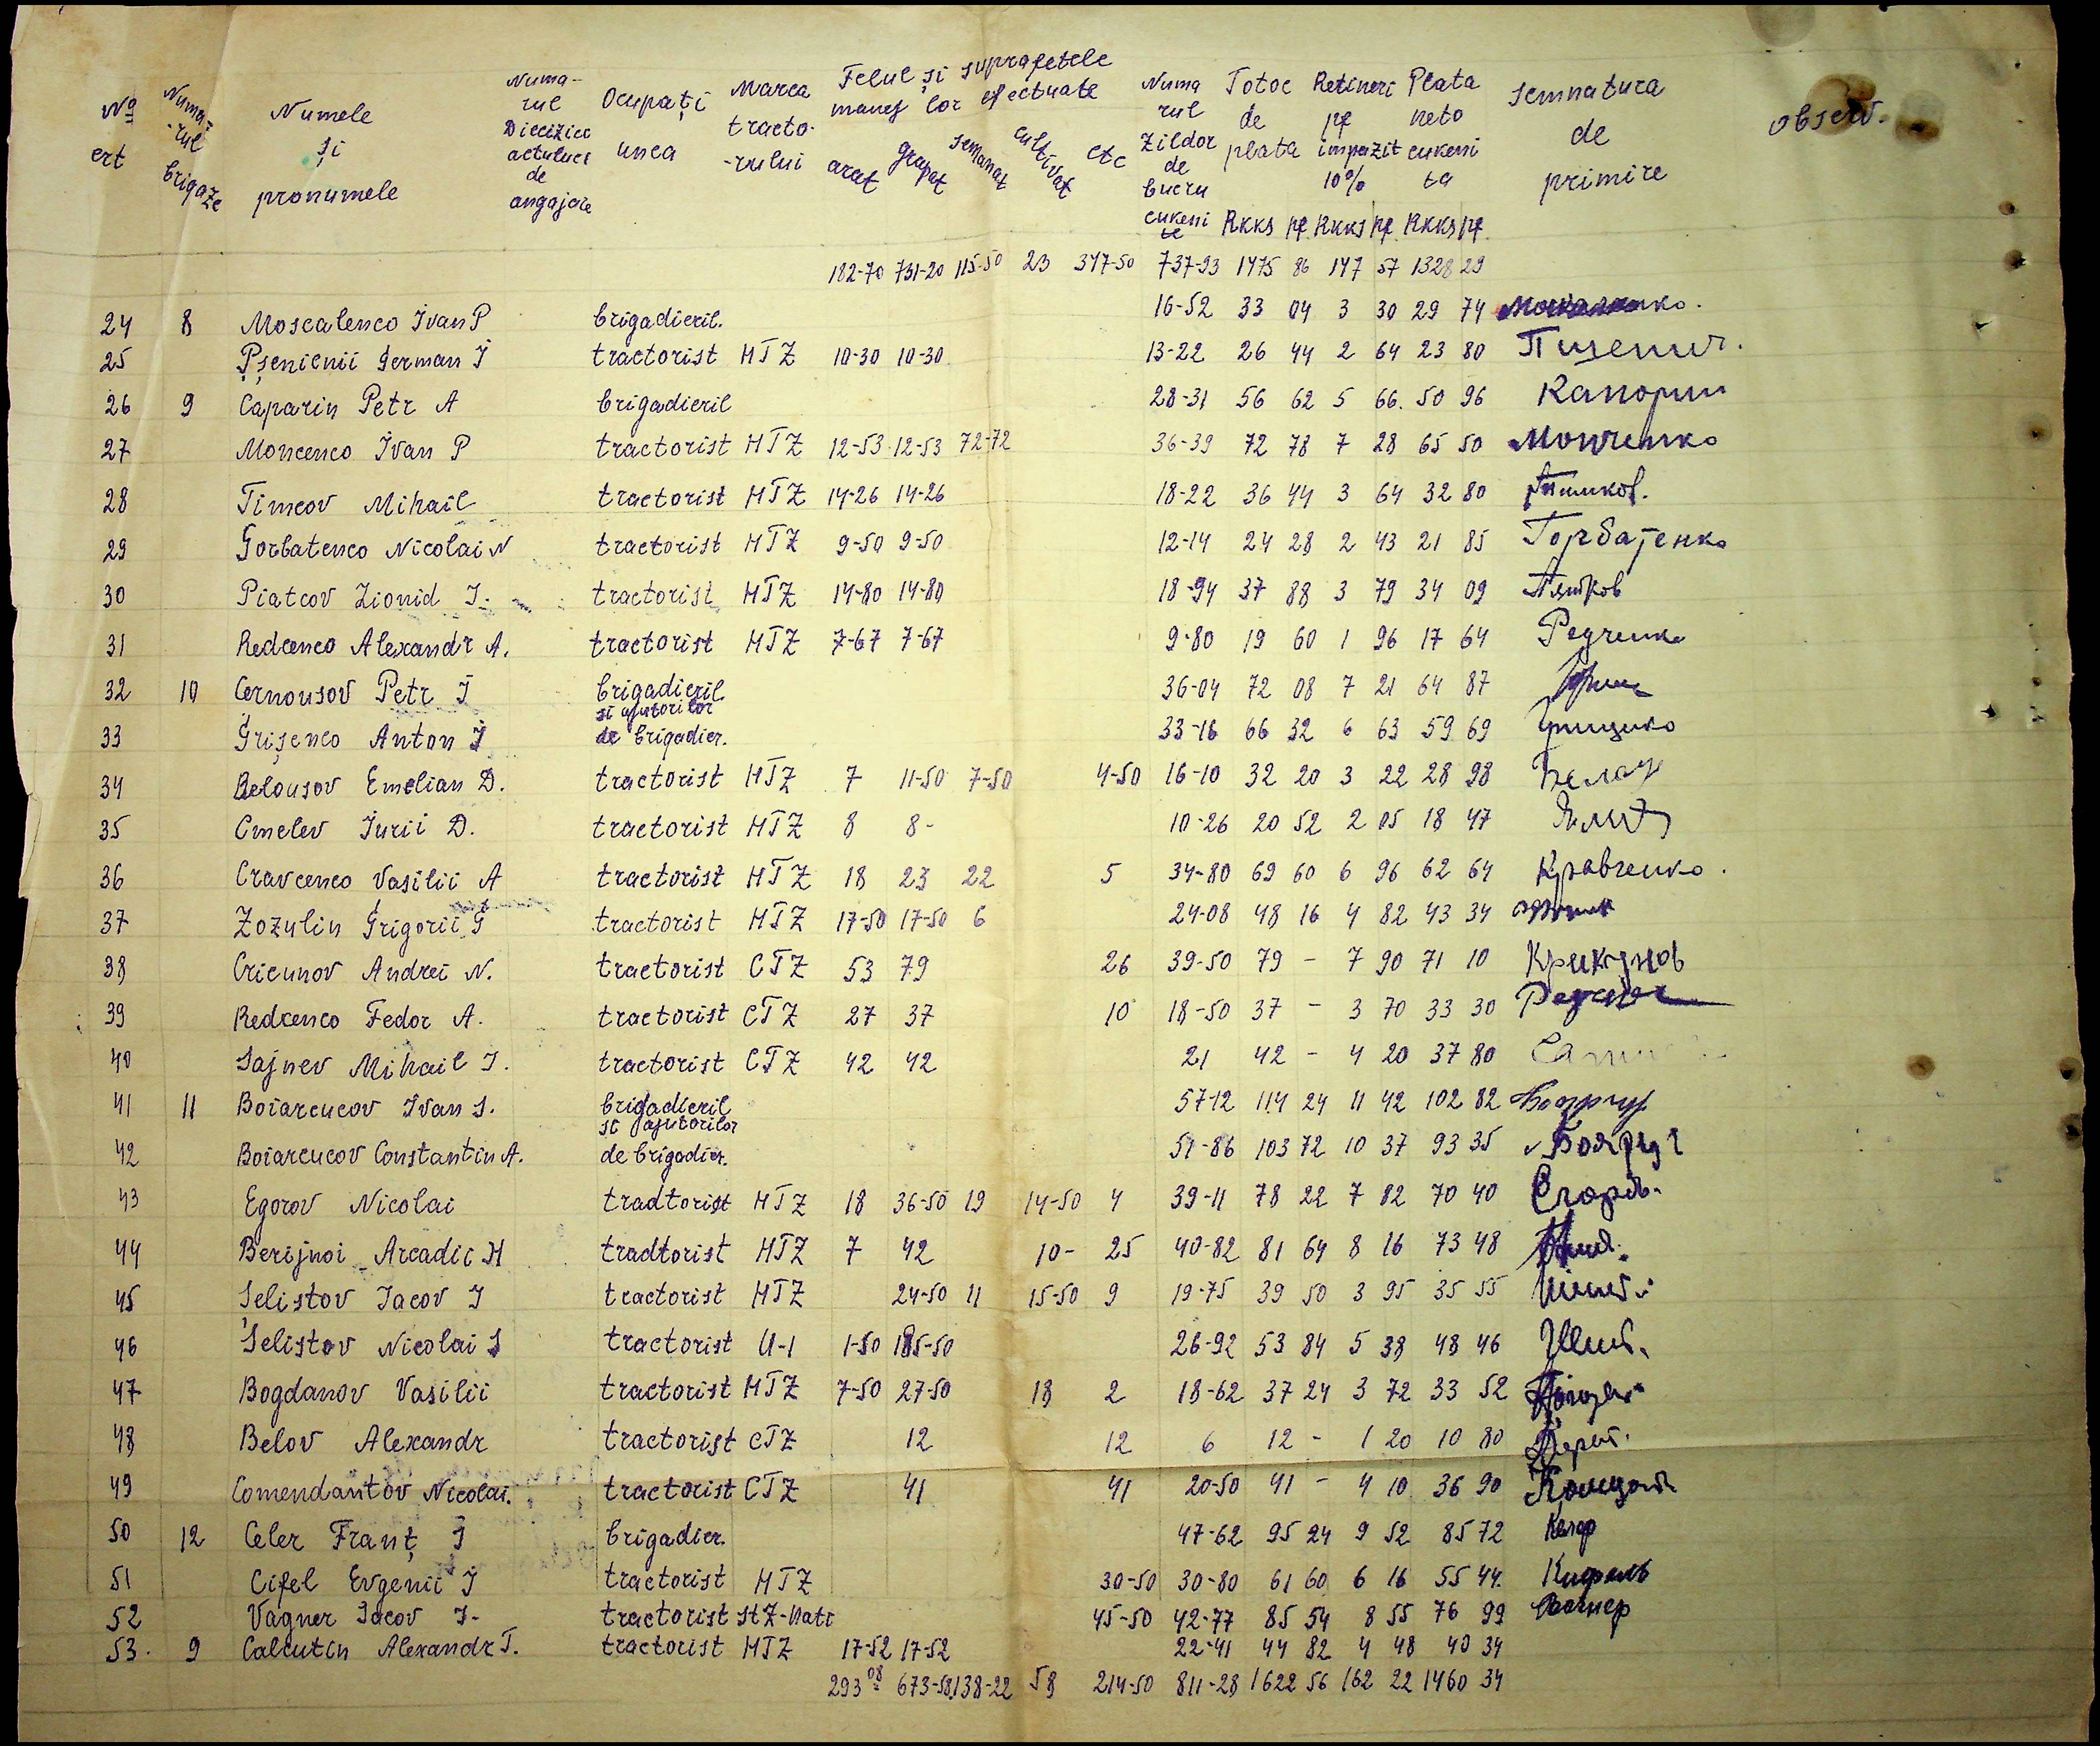 Nº crt Numa-rul brigaze Numele și pronumele Numa-rul Diciziei actului de angajare Ocupați unea Marca tracto-rului Felul și suprafetele muncf lor efectuate arat grapat semanat cultivat etc Numa rul zildor de lucru cukeni te Totoc de plata Rkks pf Retineri pf impozit 10% Rkks pf Plata neto cukeni ta Rkks pf semnatura de primire observ.
182-70 731-20 115-50 23 347-50 737-93 1475 86 147 57 1328 29
24 8 Moscalenco Ivan P brigadieril. 16-52 33 04 3 30 29 74
25 Pșenicnii German I tractorist HTZ 10-30 10-30 13-22 26 44 2 64 23 80 Пшенич.
26 9 Caparin Petr A brigadieril 28-31 56 62 5 66. 50 96 Капорин
27 Moncenco Ivan P tractorist HTZ 12-53 12-53 72-72 36-39 72 78 7 28 65 50 Монченко
28 Timcov Mihail tractorist HTZ 14-26 14-26 18-22 36 44 3 64 32 80 Тимков.
29 Gorbatenco Nicolai N tractorist HTZ 9-50 9-50 12-14 24 28 2 43 21 85 Горбатенко
30 Piatcov Lionid I. tractorist HTZ 14-80 14-80 18-94 37 88 3 79 34 09 Пятков
31 Redcenco Alexandr A. tractorist HTZ 7-67 7-67 9-80 19 60 1 96 17 64 Редченко
32 10 Cernousov Petr I brigadieril 36-04 72 08 7 21 64 87
33 Grișenco Anton I si ajutorilor de brigadier. 33-16 66 32 6 63 59 69 Грищенко
34 Belousov Emelian D. tractorist HTZ 7 11-50 7-50 4-50 16-10 32 20 3 22 28 98 Белоу
35 Cmelev Iurii D. tractorist HTZ 8 8- 10-26 20 52 2 05 18 47
36 Cravcenco Vasilii A tractorist HTZ 18 23 22 5 34-80 69 60 6 96 62 64 Кравченко.
37 Zozulin Grigorii G tractorist HTZ 17-50 17-50 6 24-08 48 16 4 82 43 34
38 Cricunov Andrei N. tractorist CTZ 53 79 26 39-50 79 - 7 90 71 10 Крикунов
39 Redcenco Fedor A. tractorist CTZ 27 37 10 18-50 37 - 3 70 33 30
40 Sajnev Mihail I. tractorist CTZ 42 42 21 42 - 4 20 37 80
41 11 Boiarcucov Ivan S. brigadieril 57-12 114 24 11 42 102 82
42 Boiarcucov Constantin A. si ajutorilor de brigadier. 51-86 103 72 10 37 93 35
43 Egorov Nicolai tradtorist HTZ 18 36-50 19 14-50 4 39-11 78 22 7 82 70 40 Егоров.
44 Berijnoi Arcadie H tradtorist HTZ 7 42 10- 25 40-82 81 64 8 16 73 48
45 Șelistov Iacov I tractorist HTZ 24-50 11 15-50 9 19-75 39 50 3 95 35 55
46 Selistov Nicolai S tractorist U-1 1-50 185-50 26-92 53 84 5 38 48 46
47 Bogdanov Vasilii tractorist HTZ 7-50 27-50 18 2 18-62 37 24 3 72 33 52
48 Belov Alexandr tractorist CTZ 12 12 6 12 - 1 20 10 80
49 Comendantov Nicolai. tractorist CTZ 41 41 20-50 41 - 4 10 36 90
50 12 Celer Franț I brigadier. 47-62 95 24 9 52 85 72 Келер
51 Cifel Evgenii I tractorist HTZ 30-50 30-80 61 60 6 16 55 44. Кифель
52 Vagner Iacov I- tractorist StZ-Nati 45-50 42-77 85 54 8 55 76 99 Вагнер
53. 9 Calcutin Alexandr T. tractorist HTZ 17-52 17-52 22-41 44 82 4 48 40 34
293 08 673-58 138-22 58 214-50 811-28 1622 56 162 22 1460 34